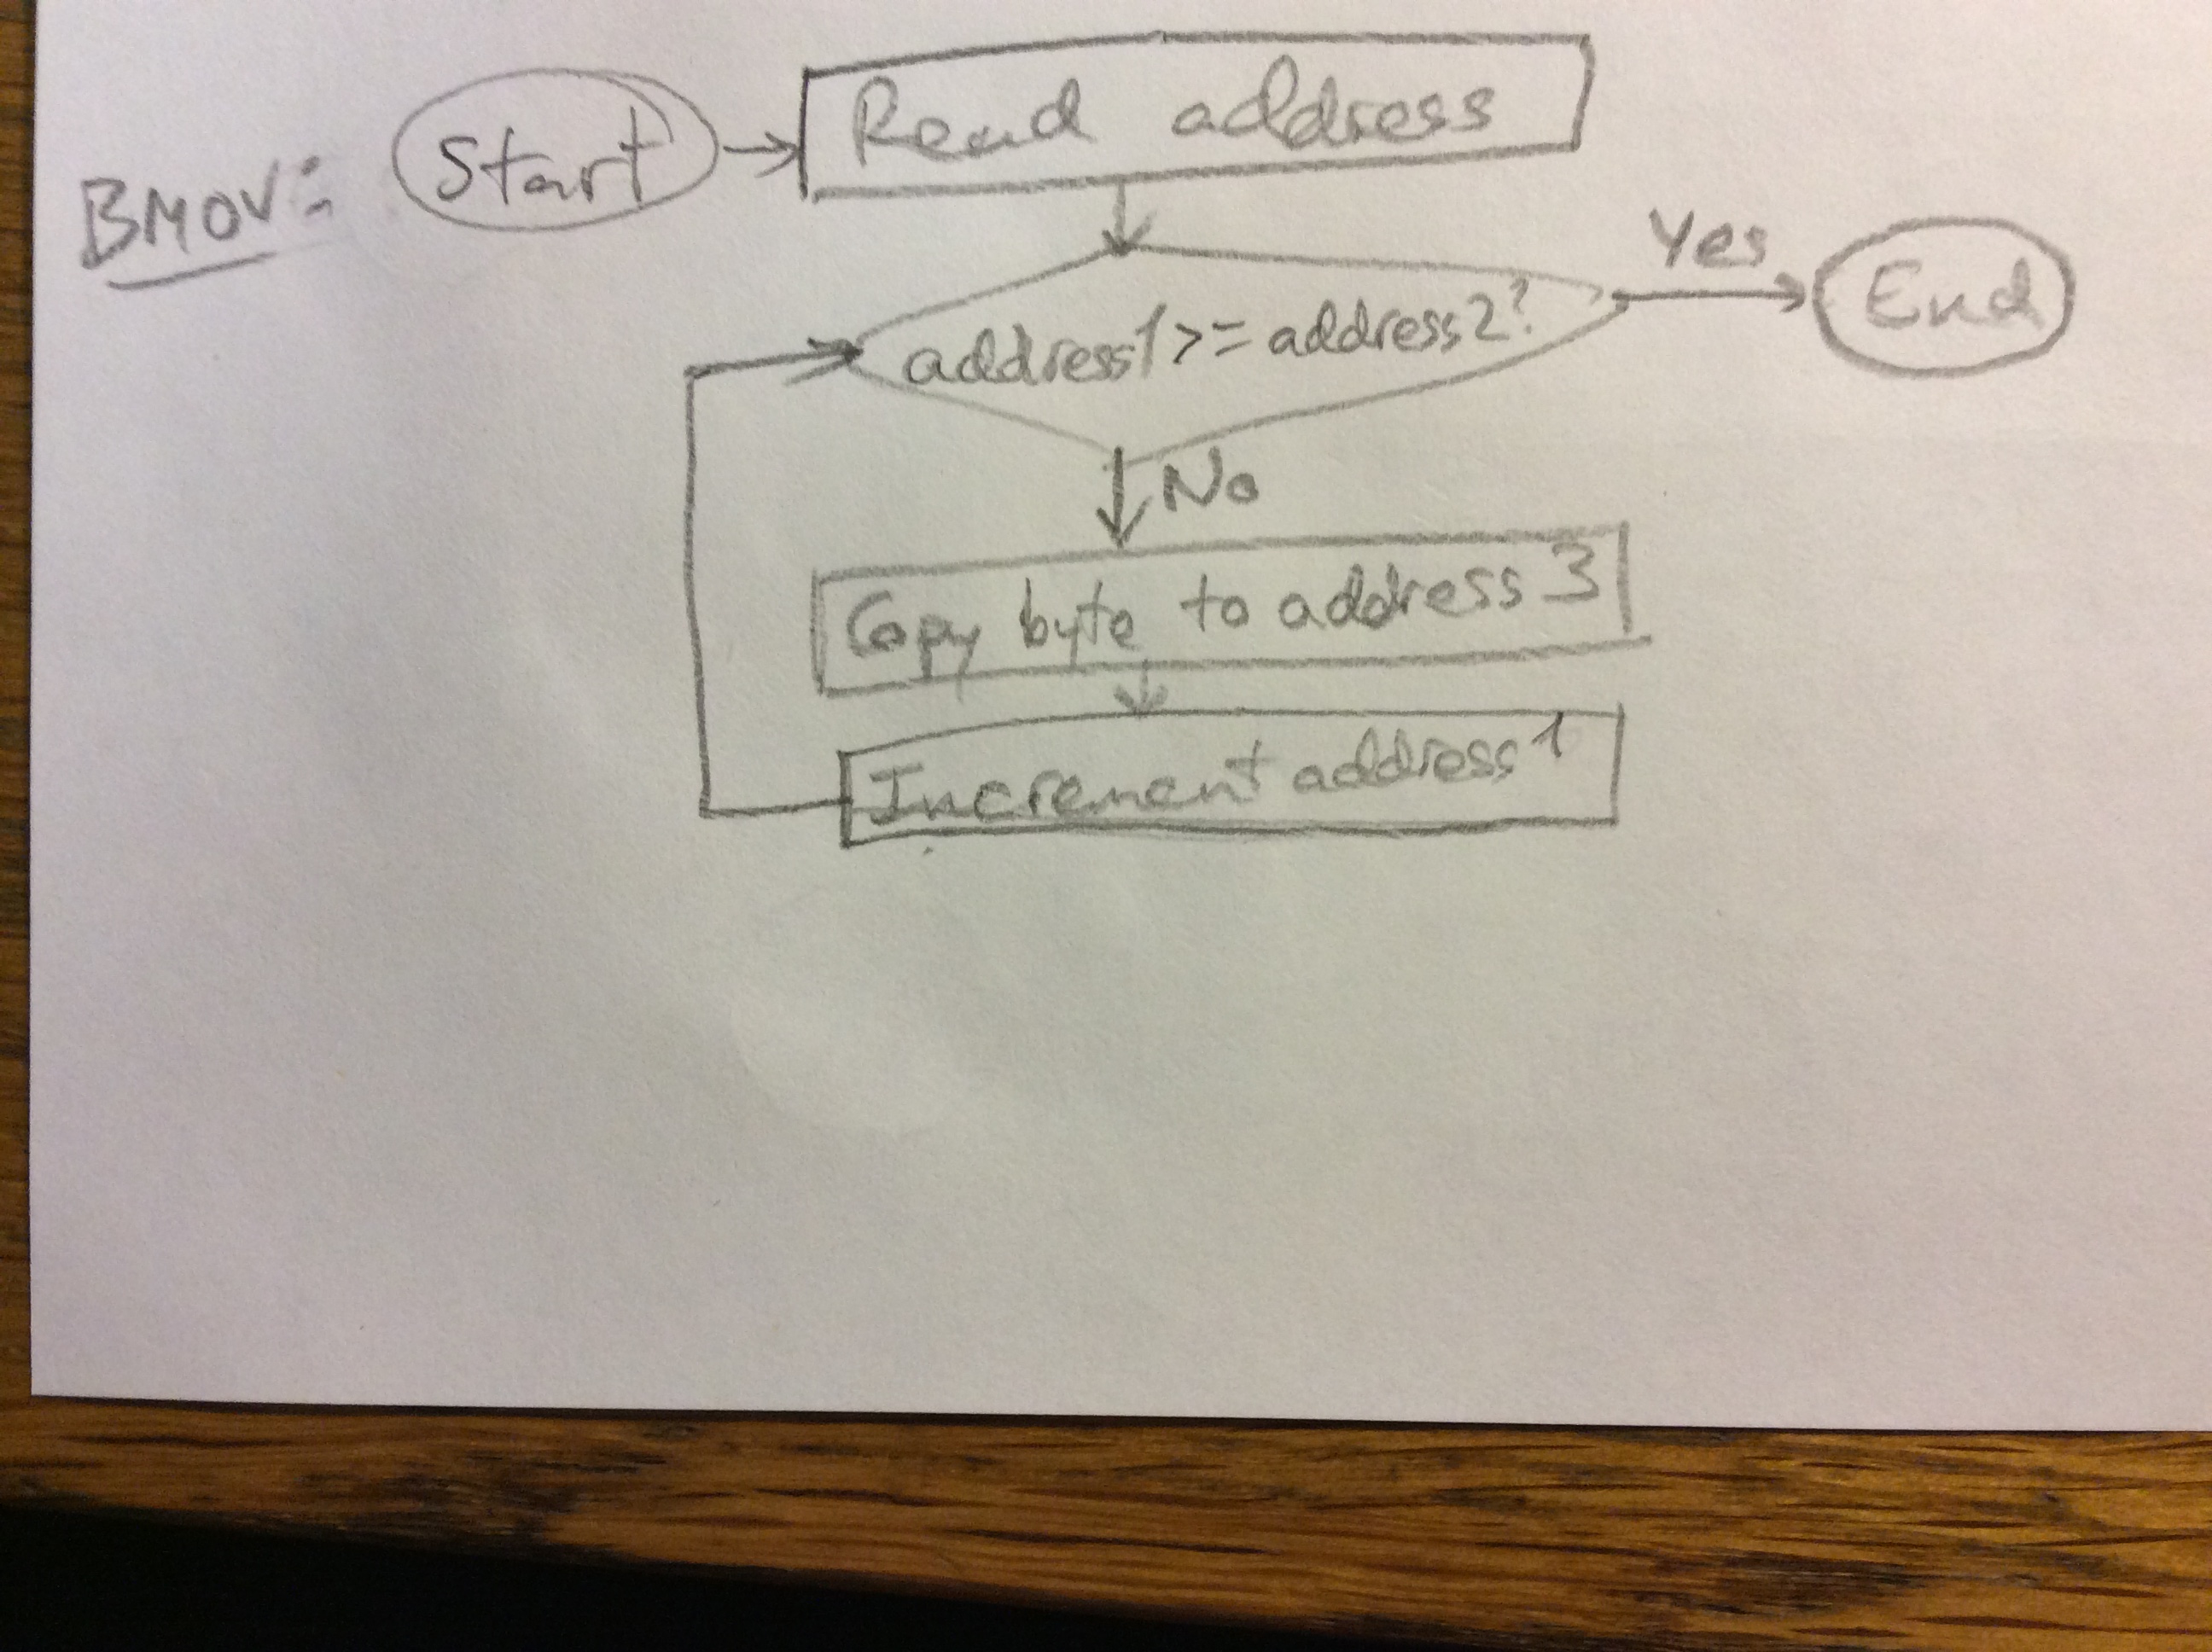 BMOV:
Start
Read address
address1>=address2?
Yes
End
No
Copy byte to address 3
Increment address1